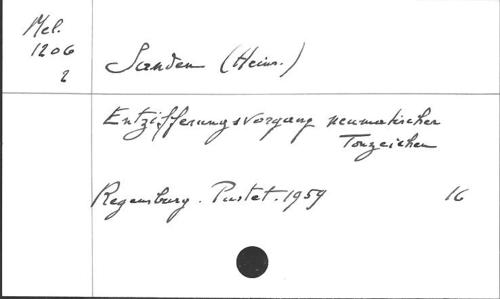 Mel.
1206
2
Sanden (Heinr.)
Entzifferungsvorgang neumatischer
Tonzeichen
Regensburg. Pustet. 1959 16